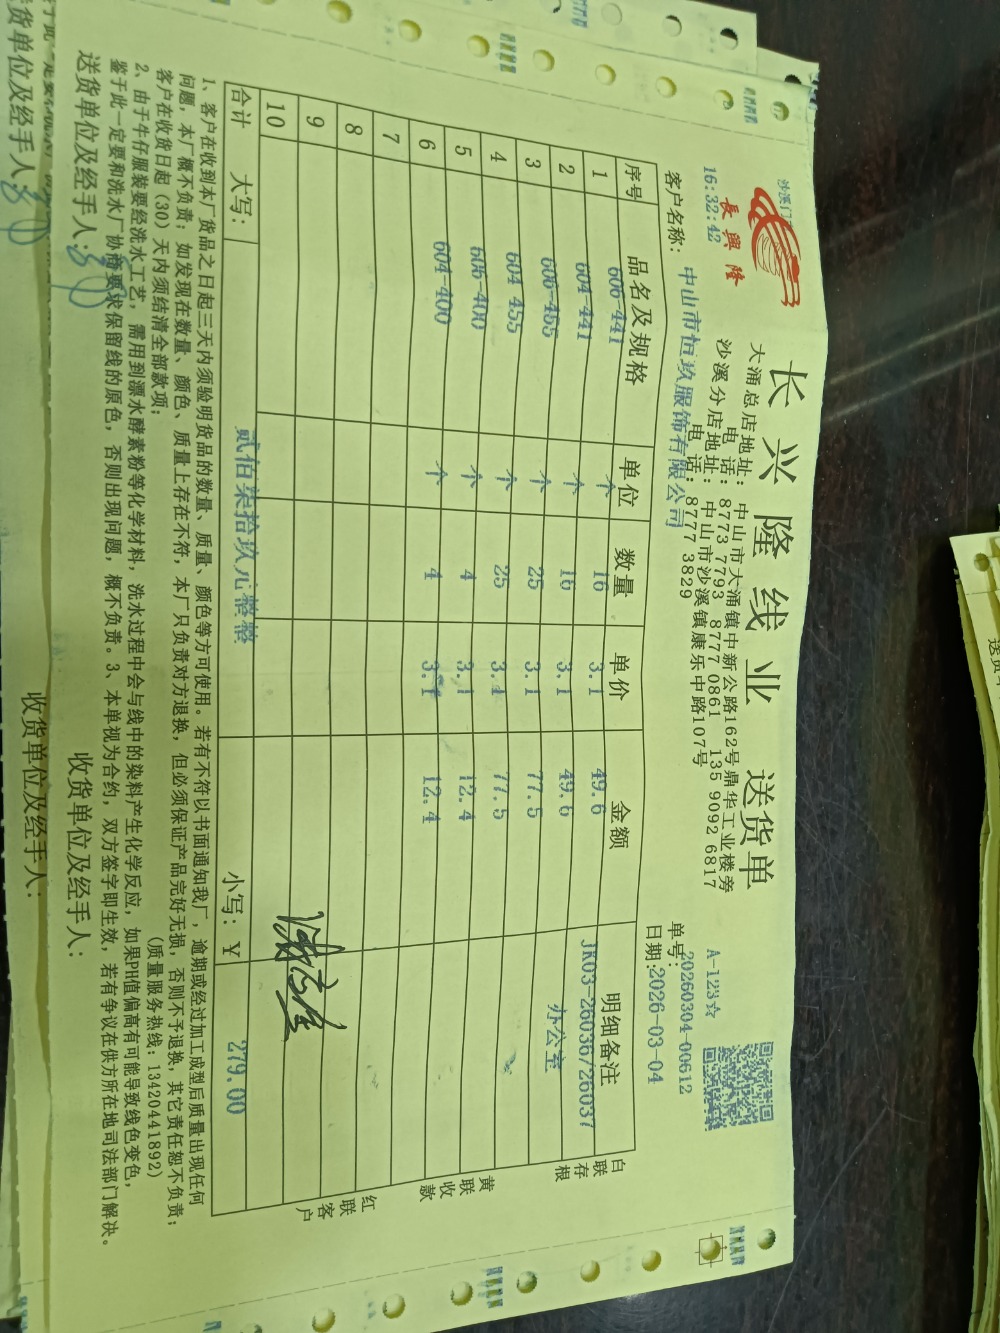 沙溪门市
長興隆
16:32:42
长兴隆线业 送货单
大涌总店地址:中山市大涌镇中新公路162号鼎华工业楼旁
电 话:8773 7793 8777 0861 135 9092 6817
沙溪分店地址:中山市沙溪镇康乐中路107号
电 话:8777 3829
A-123☆
单号:20260304-00612
客户名称:中山市恒玖服饰有限公司
日期:2026-03-04
序号 品名及规格 单位 数量 单价 金额 明细备注
1 606-441 个 16 3.1 49.6 JK03-26036/26037
2 604-441 个 16 3.1 49.6 办公室
3 606-455 个 25 3.1 77.5
4 604 455 个 25 3.1 77.5
5 606-400 个 4 3.1 12.4
6 604-400 个 4 3.1 12.4
7
8
9
10
合计 大写:贰佰柒拾玖元整整 小写:¥ 279.00
白联存根
黄联收款
红联客户
1、客户在收到本厂货品之日起三天内须验明货品的数量、质量、颜色等方可使用。若有不符以书面通知我厂,逾期或经过加工成型后质量出现任何
问题,本厂概不负责;如发现在数量、颜色、质量上存在不符,本厂只负责对方退换,但必须保证产品完好无损,否则不予退换,其它责任恕不负责;
客户在收货日起(30)天内须结清全部款项;
(质量服务热线:13420441892)
2、由于牛仔服装要经洗水工艺,需用到漂水酵素粉等化学材料,洗水过程中会与线中的染料产生化学反应,如果PH值偏高有可能导致线色变色,
鉴于此一定要和洗水厂协商要求保留线的原色,否则出现问题,概不负责。3、本单视为合约,双方签字即生效,若有争议在供方所在地司法部门解决。
送货单位及经手人:
收货单位及经手人:
送货单位及经手人:
收货单位及经手人: